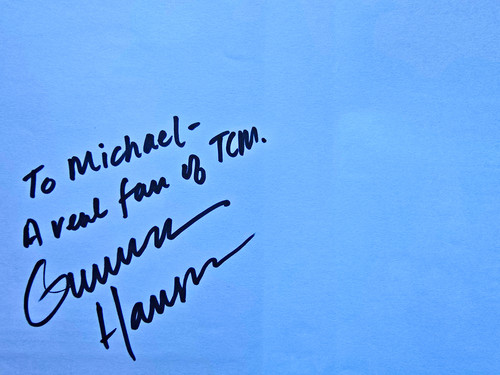 To Michael-
A real fan of TCM.
Gunnar
Hansen